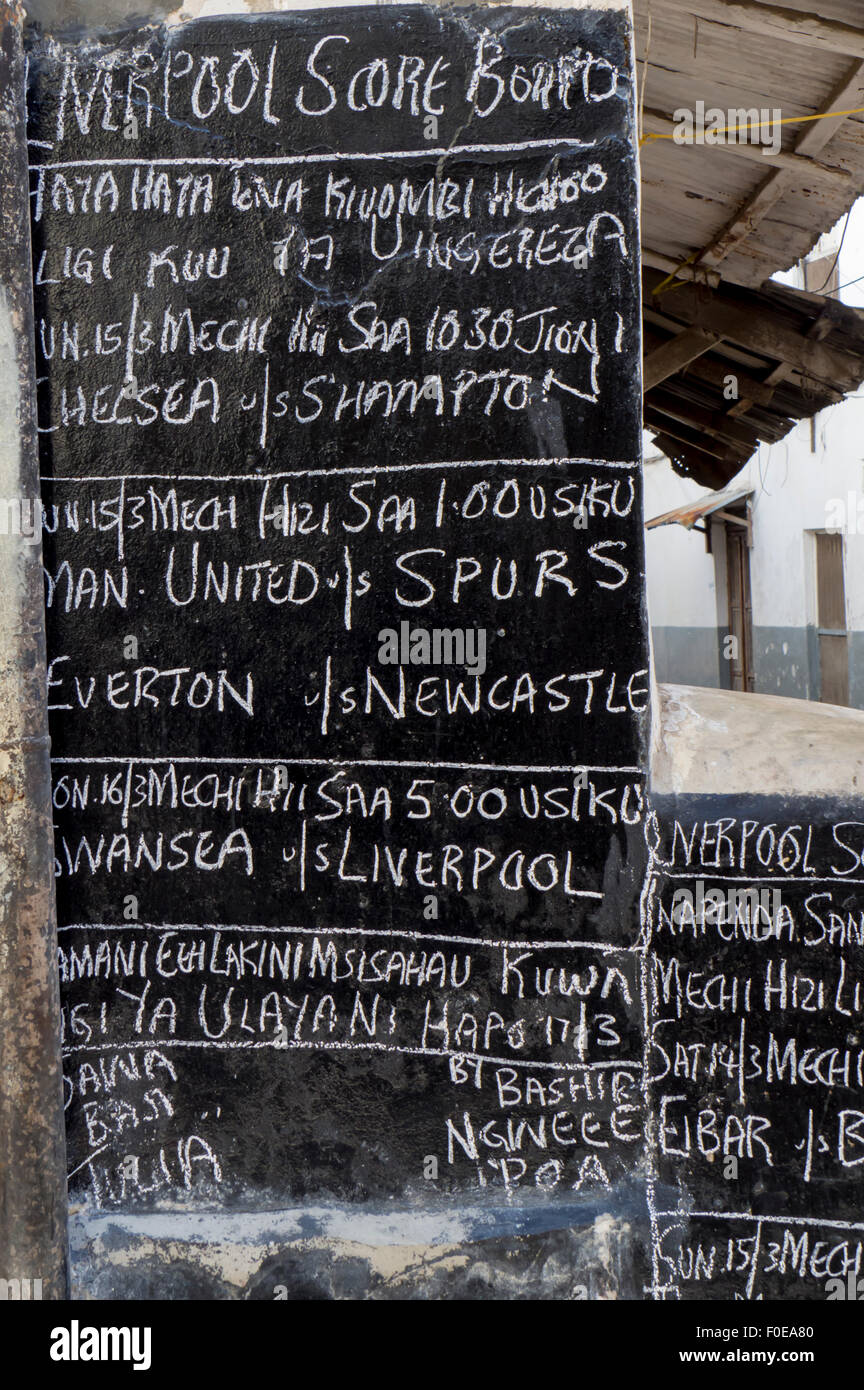 LIVERPOOL SCORE BOARD
HAYA HAYA ENA KIVUMBI HICHOO
LIGI KUU YA UINGEREZA
SUN.15/3 MECHI HII SAA 1030 JIONI
CHELSEA v/s SHAMPTON
SUN.15/3 MECH HIZI SAA 1.00 USIKU
MAN. UNITED v/s SPURS
EVERTON v/s NEWCASTLE
MON.16/3 MECHI HII SAA 5.00 USIKU
SWANSEA v/s LIVERPOOL
JAMANI EEH LAKINI MSISAHAU KUWA
LIGI YA ULAYA NI HAPO 17/3
SAWA
BASI
TULIA
BY BASHIR
NGWEEE
POA
LIVERPOOL S
NAPENDA SAN
MECHI HIZI LI
SAT 14/3 MECHI
EIBAR v/s B
SUN.15/3 MECHI
alamy
Image ID: F0EA80
www.alamy.com